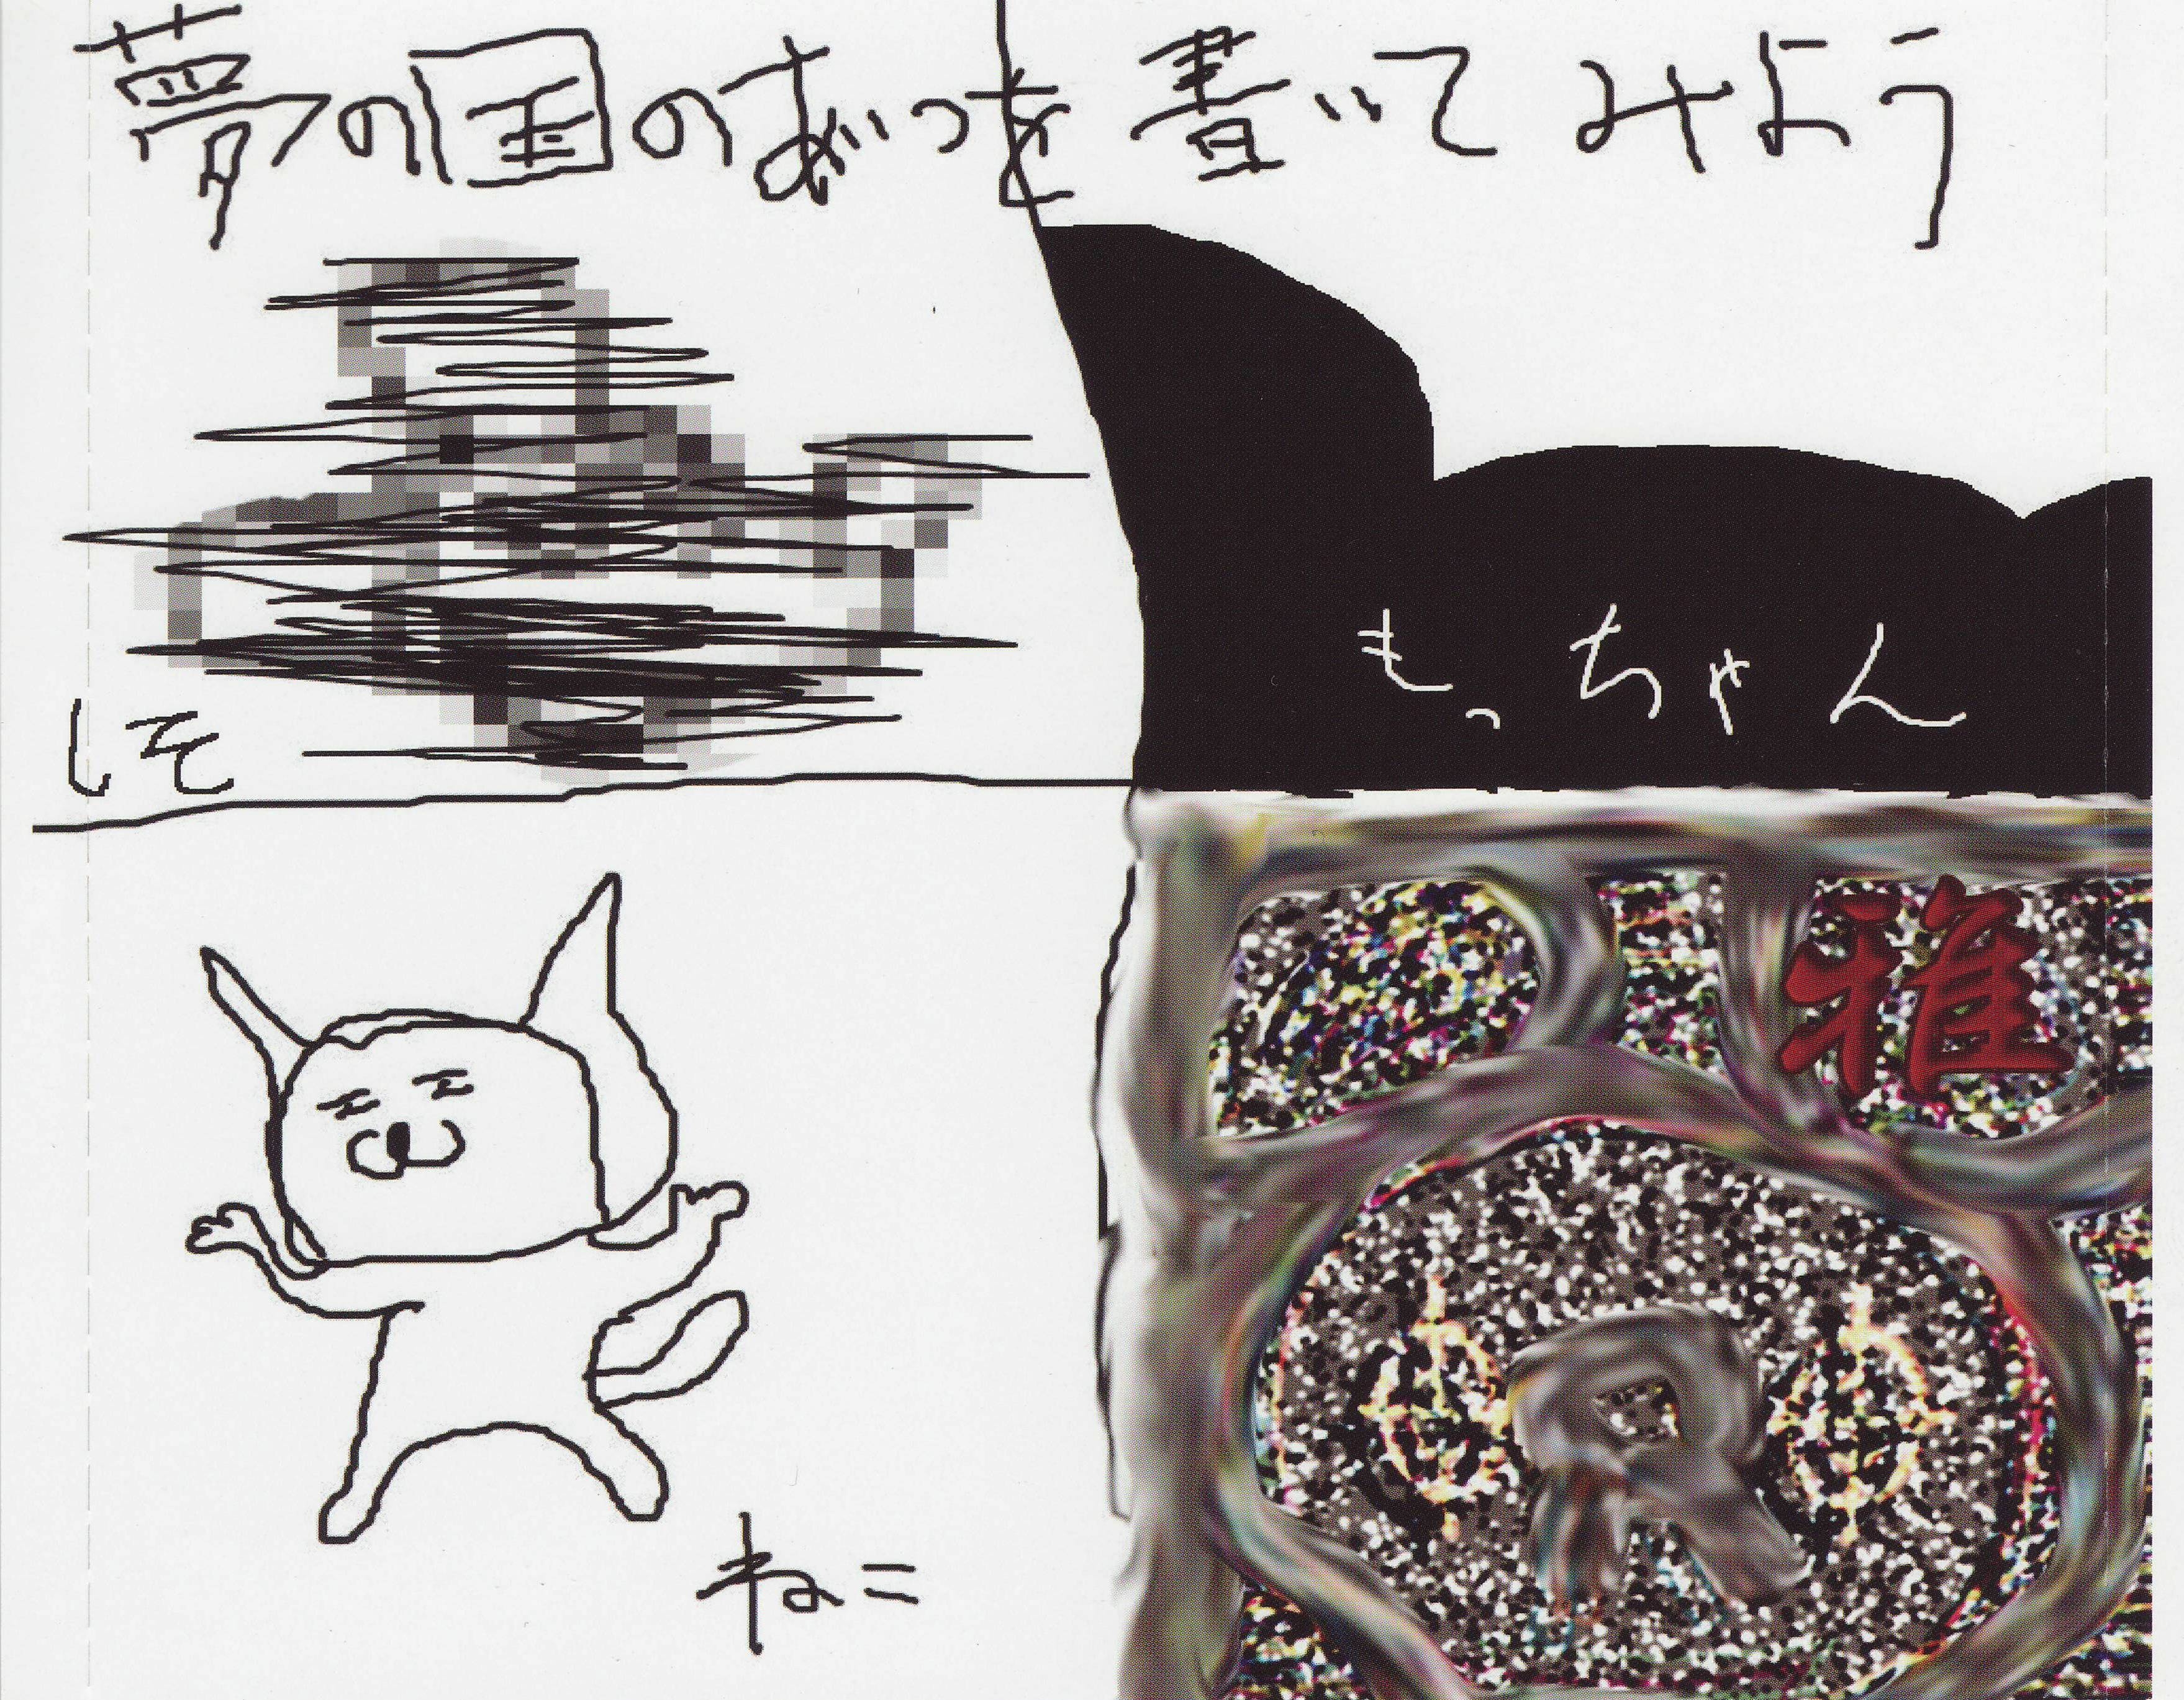 夢の国のあいつを書いてみよう
しそ
もっちゃん
雅
R
ねこ